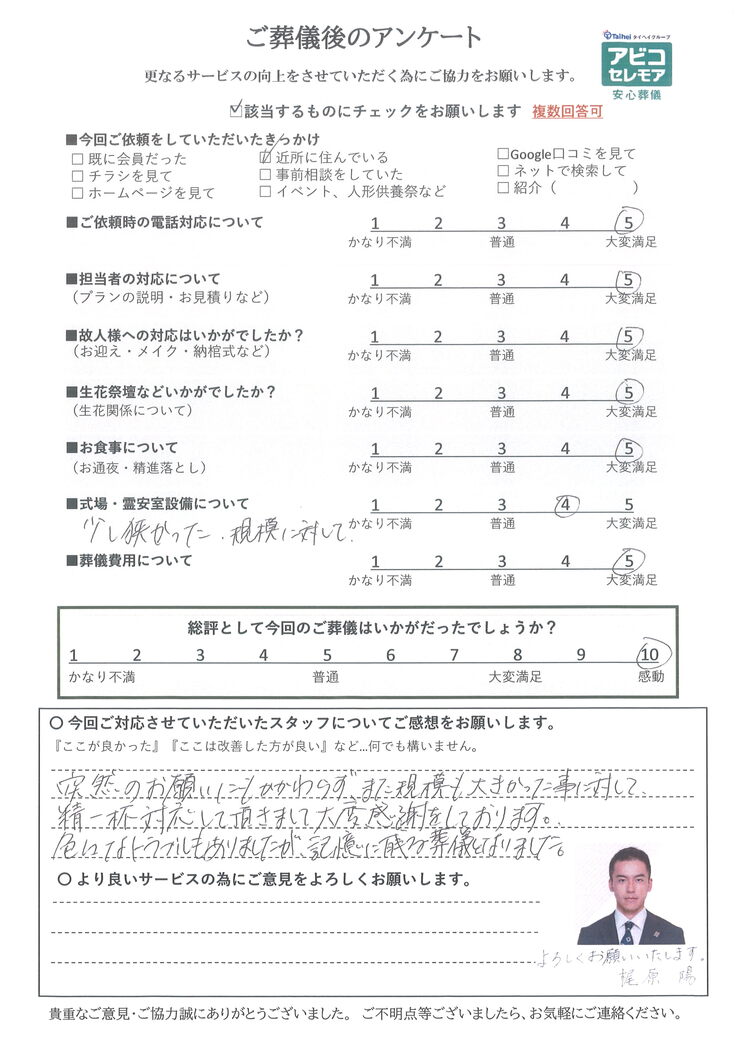 ご葬儀後のアンケート
Taihei タイヘイグループ
アビコ
セレモア
安心葬儀
更なるサービスの向上をさせていただく為にご協力をお願いします。
☑該当するものにチェックをお願いします 複数回答可
■今回ご依頼をしていただいたきっかけ
□ 既に会員だった ☑ 近所に住んでいる □Google口コミを見て
□ チラシを見て □ 事前相談をしていた □ ネットで検索して
□ ホームページを見て □ イベント、人形供養祭など □ 紹介（ ）
■ご依頼時の電話対応について 1 2 3 4 5
かなり不満 普通 大変満足
■担当者の対応について 1 2 3 4 5
（プランの説明・お見積りなど） かなり不満 普通 大変満足
■故人様への対応はいかがでしたか？ 1 2 3 4 5
（お迎え・メイク・納棺式など） かなり不満 普通 大変満足
■生花祭壇などいかがでしたか？ 1 2 3 4 5
（生花関係について） かなり不満 普通 大変満足
■お食事について 1 2 3 4 5
（お通夜・精進落とし） かなり不満 普通 大変満足
■式場・霊安室設備について 1 2 3 4 5
少し狭かった．規模に対して． かなり不満 普通 大変満足
■葬儀費用について 1 2 3 4 5
かなり不満 普通 大変満足
総評として今回のご葬儀はいかがだったでしょうか？
1 2 3 4 5 6 7 8 9 10
かなり不満 普通 大変満足 感動
〇 今回ご対応させていただいたスタッフについてご感想をお願いします。
『ここが良かった』『ここは改善した方が良い』など…何でも構いません。
突然のお願いにもかかわらず、また規模も大きかった事に対して、
精一杯対応して頂きまして大変感謝をしております。
色々なトラブルもありましたが、記憶に残る葬儀となりました。
〇 より良いサービスの為にご意見をよろしくお願いします。
よろしくお願いいたします。
梶原 陽
貴重なご意見・ご協力誠にありがとうございました。 ご不明点等ございましたら、お気軽にご連絡ください。